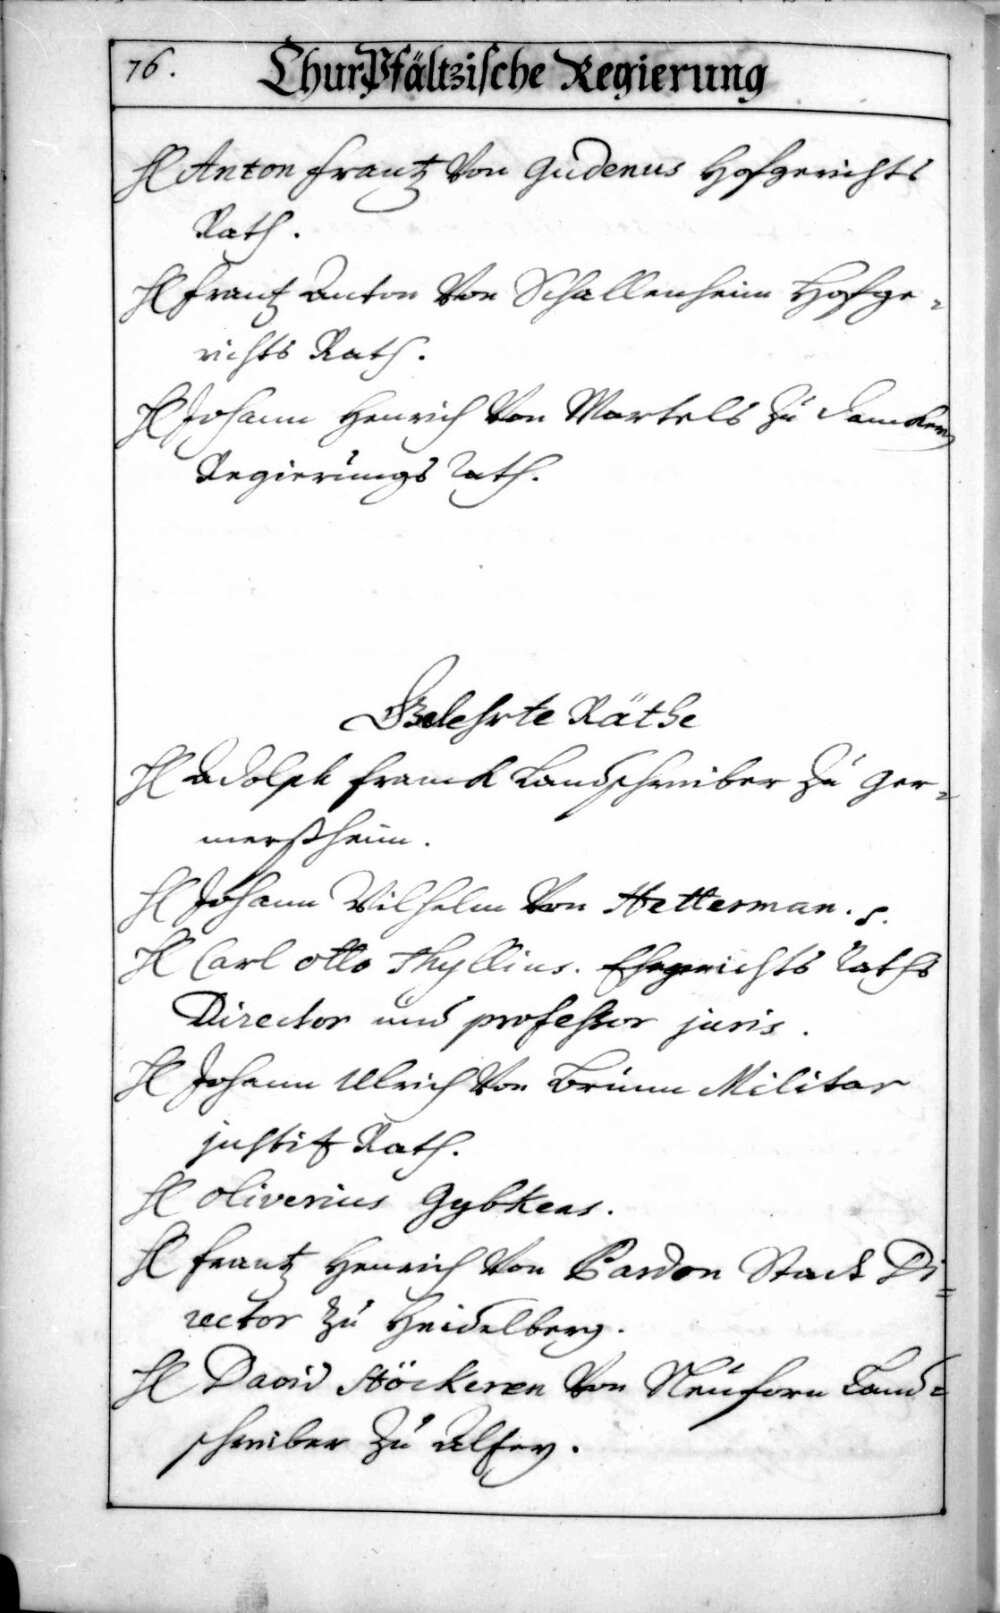 76. ChurPfältzische Regierung
H Anton Frantz Von Gudenus Hofgerichts
Rath.
H Frantz Anton Von Schallenheim Hofge-
richts Rath.
H Johann Henrich Von Martels zu
Regierungs Rath.
Gelehrte Räthe
H Adolph Franck Landschreiber zu Ger-
merßheim.
H Johann Wilhelm Von Hetterman.
H Carl Otto Thyllius. Ehegerichts Raths
Director und professor juris.
H Johann Ulrich Von Brünn Militar
justitz Rath.
H Oliverius Gybkens.
H Frantz Henrich Von Pardon Stadt Di=
rector zu Heidelberg.
H David Stöckeren Von Neuforn Land=
schreiber zu Altzey.